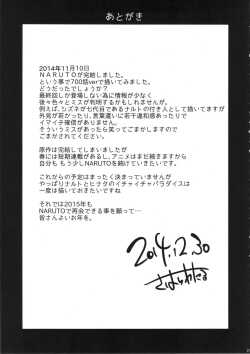 あとがき
2014年11月10日
NARUTOが完結しました。
という事で700話verで描いてみました。
どうだったでしょうか？
最終回しか登場しない為に情報が少なく
後々色々とミスが判明するかもしれませんが。
例えば、シズネが七代目であるナルトの付き人として描いてますが
外見が若かったり、言葉遣いに若干違和感あったりで
イマイチ確信がありません。
そういうミスがあったら笑ってごまかしますので
ごまかされてください。
原作は完結してしまいましたが
春には短期連載があるし、アニメはまだ続きますから
自分ももう少しNARUTOを続けていきたいです。
これからの予定はまったく決まっていませんが
やっぱりナルトとヒナタのイチャイチャパラダイスは
一度は描いておきたいですね
それでは2015年も
NARUTOで再会できる事を願って…
皆さんよいお年を。
2014.12.30
さはらわたる